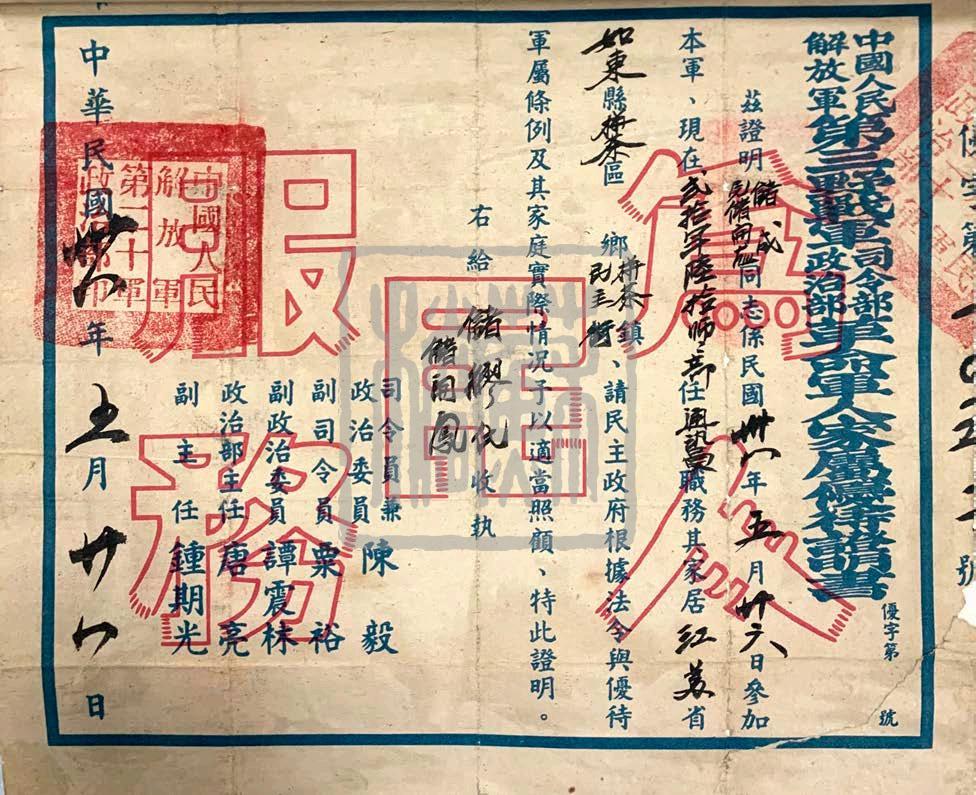 中國人民
解放軍
第三野戰軍
司令部
政治部
革命軍人家屬優待證明書
優字第 號
茲證明儲成同志係民國卅八年五月廿六日參加
本軍、現在貳拾軍陸拾師部任 職務其家居江蘇省
如東縣栟茶區 鄉栟茶鎮民主街、請民主政府根據法令與優待
軍屬條例及其家庭實際情況予以適當照顧、特此證明。
右給儲 收執
司令員兼
政治委員 陳毅
副司令員 粟裕
副政治委員 譚震林
政治部主任 唐亮
副主任 鍾期光
中華民國 年五月廿八日
為人民服務
中國人民
解放軍
第二十軍
政治部印